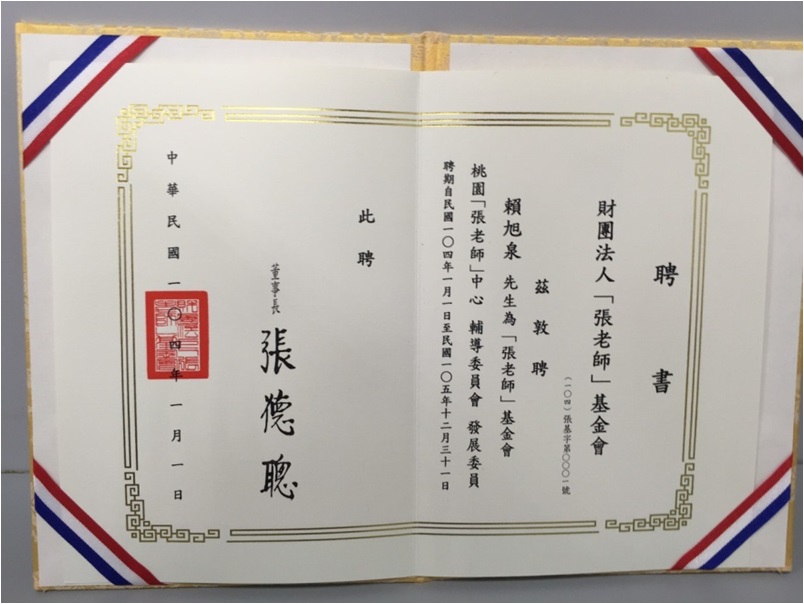 財團法人「張老師」基金會
聘書
(一〇四)張基字第〇〇〇一號
茲敦聘
賴旭泉 先生為「張老師」基金會
桃園「張老師」中心 輔導委員會 發展委員
聘期自民國一〇四年一月一日至民國一〇五年十二月三十一日
此聘
董事長 張德聰
中華民國一〇四年一月一日